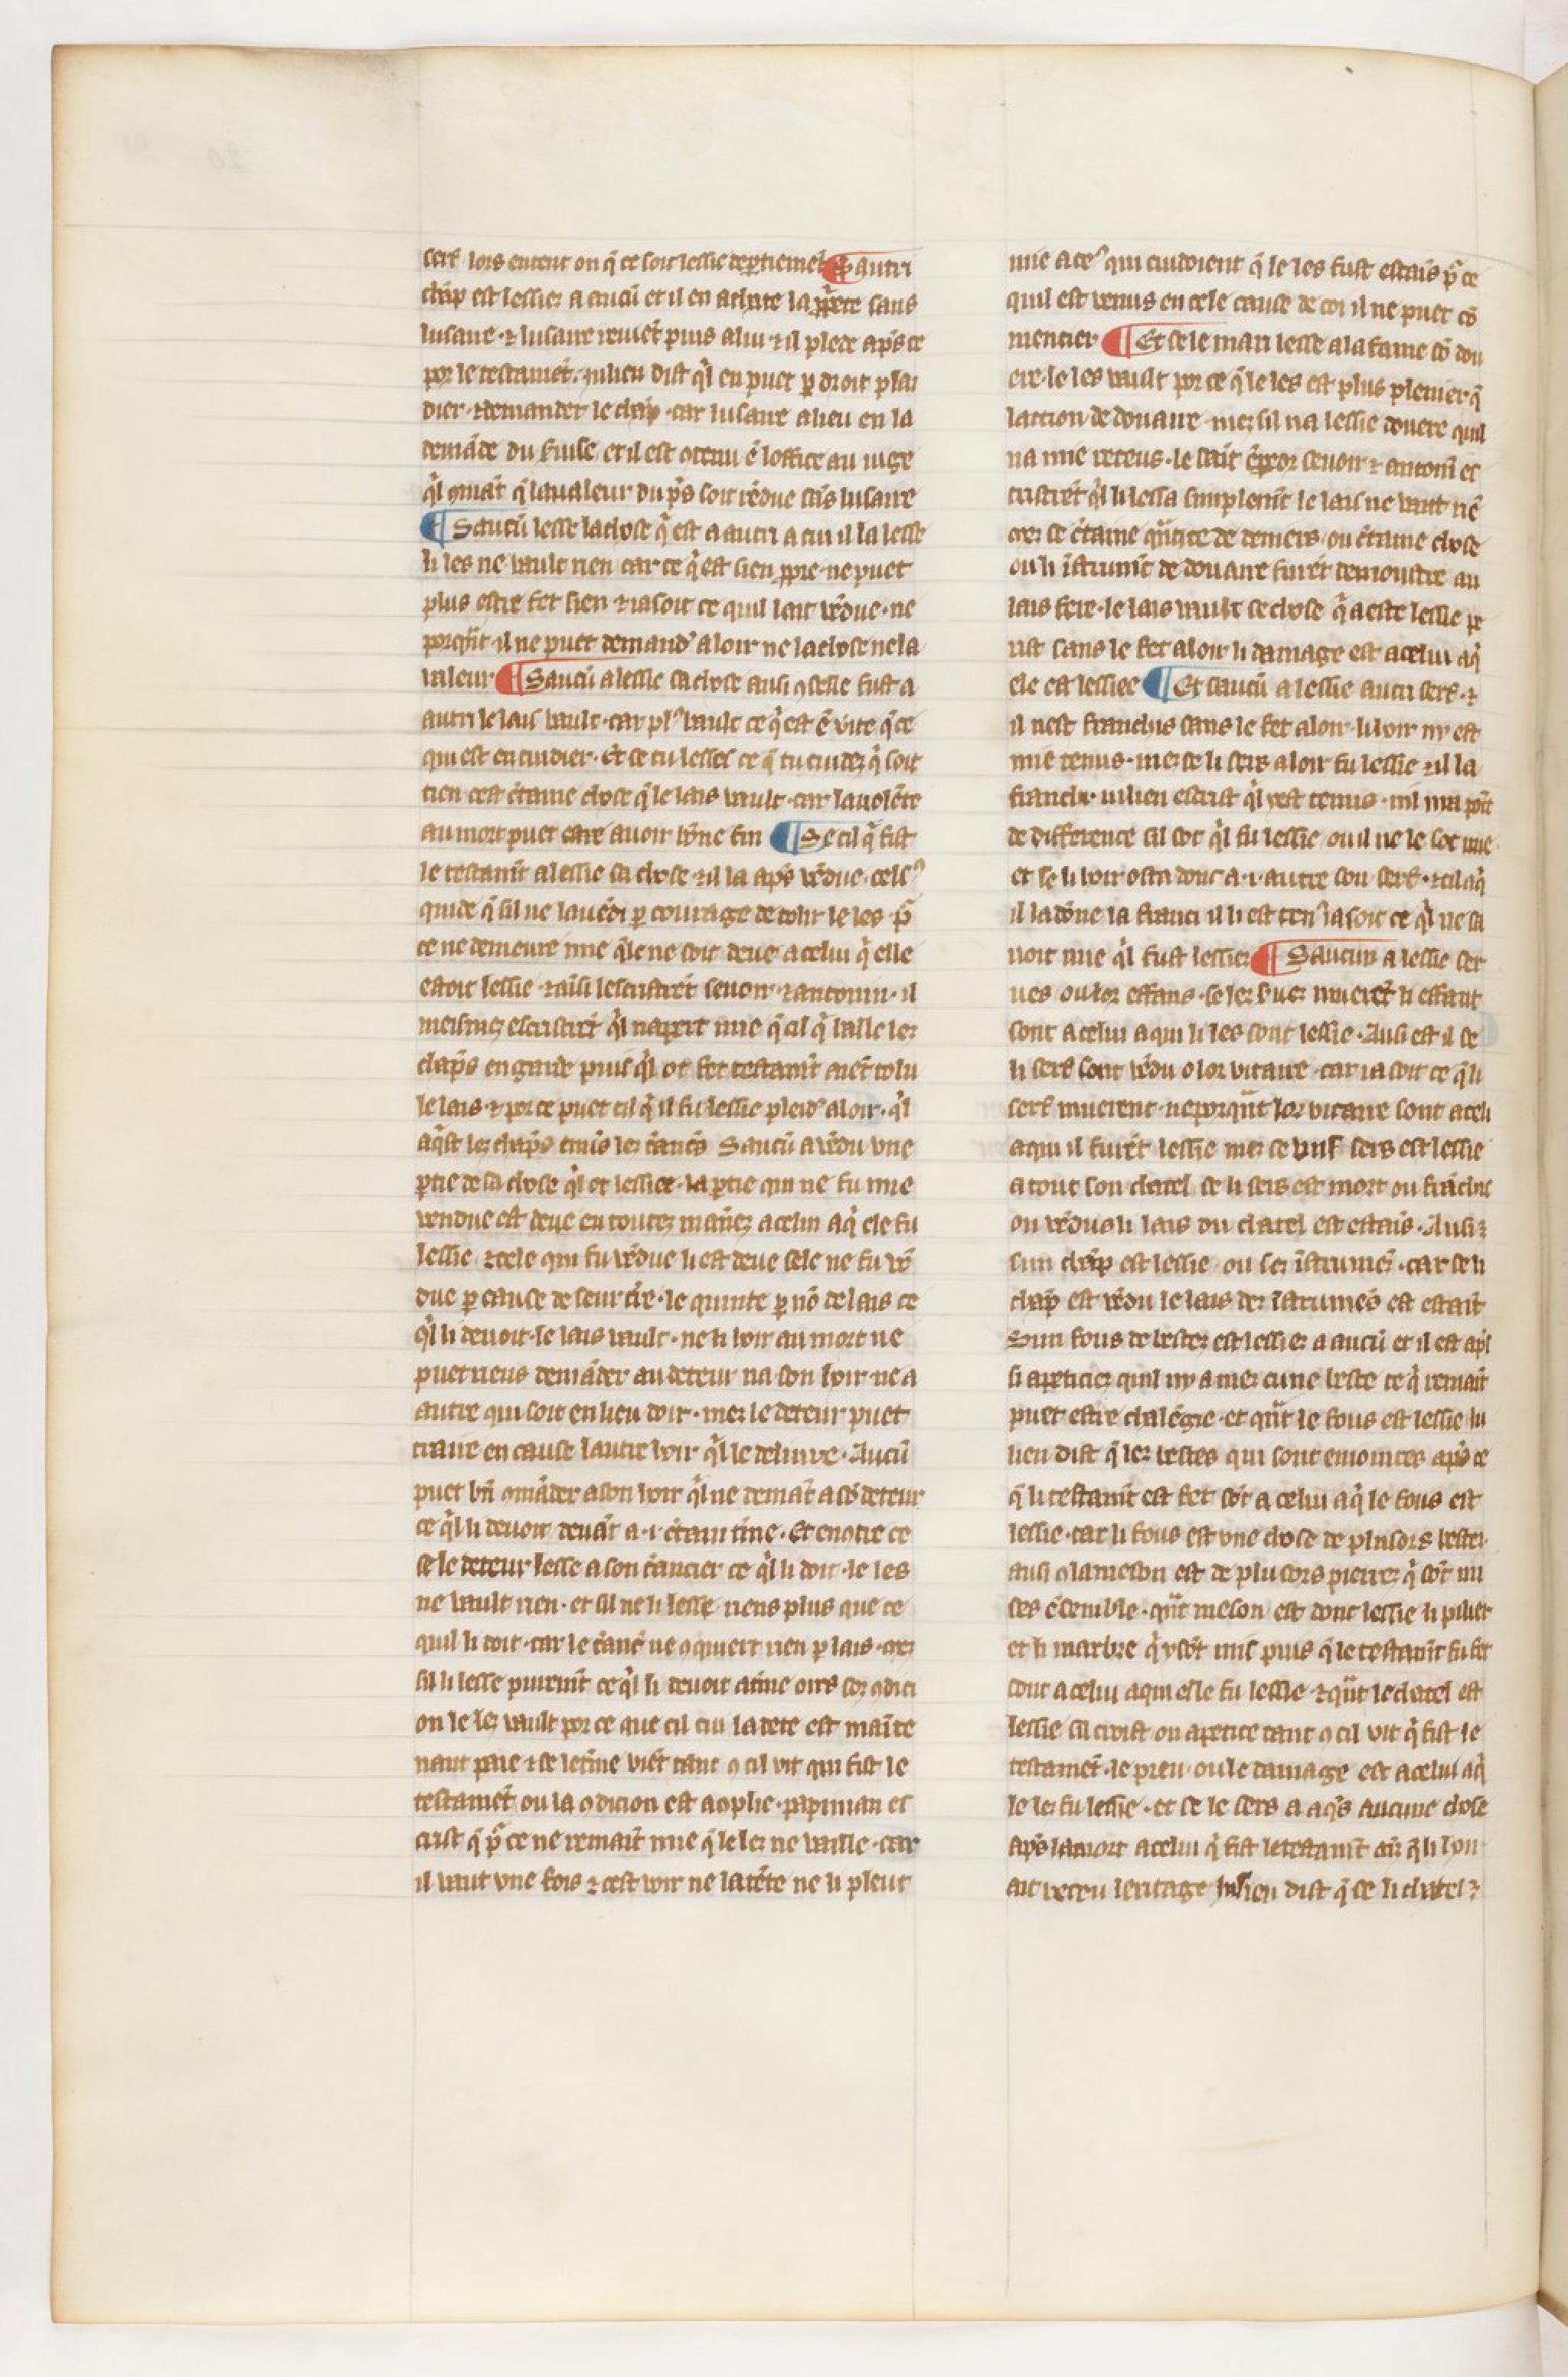 serf lors entent on q̄ ce soit lessie deꝑtiemet ¶ Sautri
chāp est lessiez a aucū et il en achate la ꝓprete sans
lusaire ⁊ lusaire reuiēt puis a lui ⁊ il plede apͥs ce
por le testamēt iulien dist qͥl en puet ꝑ droit plai
dier ⁊ demander le chāp car lusaire a lieu en la
demāde du fruise et il est ꝯtenu ē loffice au iuge
qͥl ꝯmāt q̄ la ualeur du pͥs soit rēdue sās lusaire
¶ Saucū lesse la chose qͥ est a autri a cui il la lesse
li les ne uault rien car ce qͥ est sien ꝓpre ne puet
plus estre fet sien ⁊ ia soit ce quil lait uēdue ne
porqāt il ne puet demand' a loir ne la chose ne la
ualeur ¶ Saucū a lessie sa chose ausi ꝯ selle fust a
autri le lais uault car plꝰ uault ce qͥ est ē uite q̄ ce
qui est en cuidier Et se tu lesses ce q̄ tu cuidez qͥ soit
tien cest c̄taine chose q̄ le lais uault car la uolēte
au mort puet care auoir bōne fin ¶ Se cil qͥ fist
le testamt̄ a lessie sa chose ⁊ il la apͥs uēdue celsꝰ
quide q̄ sil ne la uēdi ꝑ courage de tolir le les pͬ
ce ne demeure mie q̄le ne soit deue a celui qͥ elle
estoit lessie ⁊ aīsi lescristrēt seuoir ⁊ antonin il
meismes escristrēt qͥl napert mie q̄ cil qͥ lalle les
chāps en gaide puis qͥl ot fet testamt̄ aiēt tolu
le lais ⁊ por ce puet cil qͥ il fu lessie pleid' a loir qͥl
aqͥst les chāps enuīs les c̄anc̄s Saucū a uēdu vne
ꝑtie de sa chose qͥl ot lessiee la ꝑtie qui ne fu mie
vendue est deue en toutes maīez a celui a qͥ ele fu
lessie ⁊ cele qui fu uēdue li est deue sele ne fu uē
due ꝑ cause de seurtre le quinte ꝑ nō de lais ce
qͥl li deuoit le lais uault ne li hoir au mort ne
puet riens demāder au deteur na son hoir ne a
autre qui soit en lieu doir mes le deteur puet
traire en cause lautre hoir qͥl le deliure Aucū
puet bn̄ ꝯmāder a son hoir qͥl ne demāt a sō deteur
ce qͥl li deuoit deuāt a .i. c̄tain t̄me Et encōtre ce
se le deteur lesse a son c̄ancier ce qͥl li doit le les
ne uault rien et sil ne li lesse riens plus que ce
quil li doit car le c̄anc̄ ne ꝯquiert rien ꝑ lais mes
sil li lesse puremt̄ ce qͥl li deuoit a t̄me ou soz ꝯdici
on le les vault por ce que cil cui la dete est maīte
nant paie ⁊ se le t̄me viēt tant ꝯ cil vit qui fist le
testamēt ou la ꝯdicion est aoplie papinian es
crist q̄ pͬ ce ne remaīt mie q̄ le les ne vaille car
il vaut vne fois ⁊ cest voir ne la tēte ne li pleut
mie a ceꝰ qui cuidoient q̄ le les fust estais pͬ ce
quil est venus en cele cause de coi il ne puet cō
mencier ¶ Et se le mari lesse a la fame sō dou
ere le les vault por ce q̄ le les est plus plenier q̄
laccion de douaire mes sil na lessie douere quil
na mie receus le saīt ēpeor seuoir ⁊ antoni es
cristrēt qͥl li lessa simplemt̄ le lais ne vaut riē
mes se c̄taine qn̄tite de deniers ou c̄taine chose
ou li īstrumt̄ de douaire furēt demoustre au
lais fere le lais vault se chose qͥ a este lessie pe
rist sans le fet a loir li damage est a celui a qͥ
ele est lessiee ¶ Et saucū a lessie autri serf ⁊
il nest franchis sans le fet a loir li hoir ny est
mie tenus mes se li sers a loir fu lessie ⁊ il la
franchi iulien escrist qͥl yest tenus nil ina poīt
de difference sil sot qͥl fu lessie ou il ne le sot mie
et se li hoir osta donc a .i. autre son serf ⁊ cil a qͥ
il la dōne la franci il li est tenꝰ ia soit ce qͥl ne sa
uoit mie qͥl fust lessiez ¶ Saucun a lessie ser
ues ou lor effans se les s'ues muerēt li effant
sont a celui a qui li les sont lessie Ausi est il se
li serf sont uēdu o lor vitaire car ia soit ce q̄ li
serf muerent neporqūt lor vitaire sont a celi
a qui il furēt lessie mes se vns sers est lessie
a tout son chatel se li sers est mort ou frāchis
ou uēdus li lais du chatel est estais Ausi ⁊
sun chāp est lessie ou ses īstrumēz car se li
chāp est uēdu le lais des īstrumēs est estait
Sun fous de bestes est lessiez a aucū et il est apͥs
si apeticies quil ny a mes cune beste ce qͥ remaīt
puet estre chalēgie et qūt le fous est lessie iu
lien dist q̄ les bestes qui sont eniointes apͥs ce
q̄ li testamt̄ est fet sōt a celui a qͥ le fous est
lessie car li fous est vne chose de plusors bestes
ausi ꝯ la meson est de plusors pierres qͥ sōt mi
ses ēsemble qūt meson est donc lessie li piliet
et li marbre qͥ y sōt mis puis q̄ le testamt̄ fu fet
sont a celui a qui elle fu lessie ⁊ qūt le chatel est
lessie sil croist ou apetice tant ꝯ cil vit qͥ fist le
testamēt le preu ou le damage est a celui a qͥ
le les fu lessie et se le sers a aqͥs aucune chose
apͥs la mort a celui qͥ fist le testamt̄ aīz q̄ li hoir
ait receu leritage iulien dist q̄ se li chatel ⁊